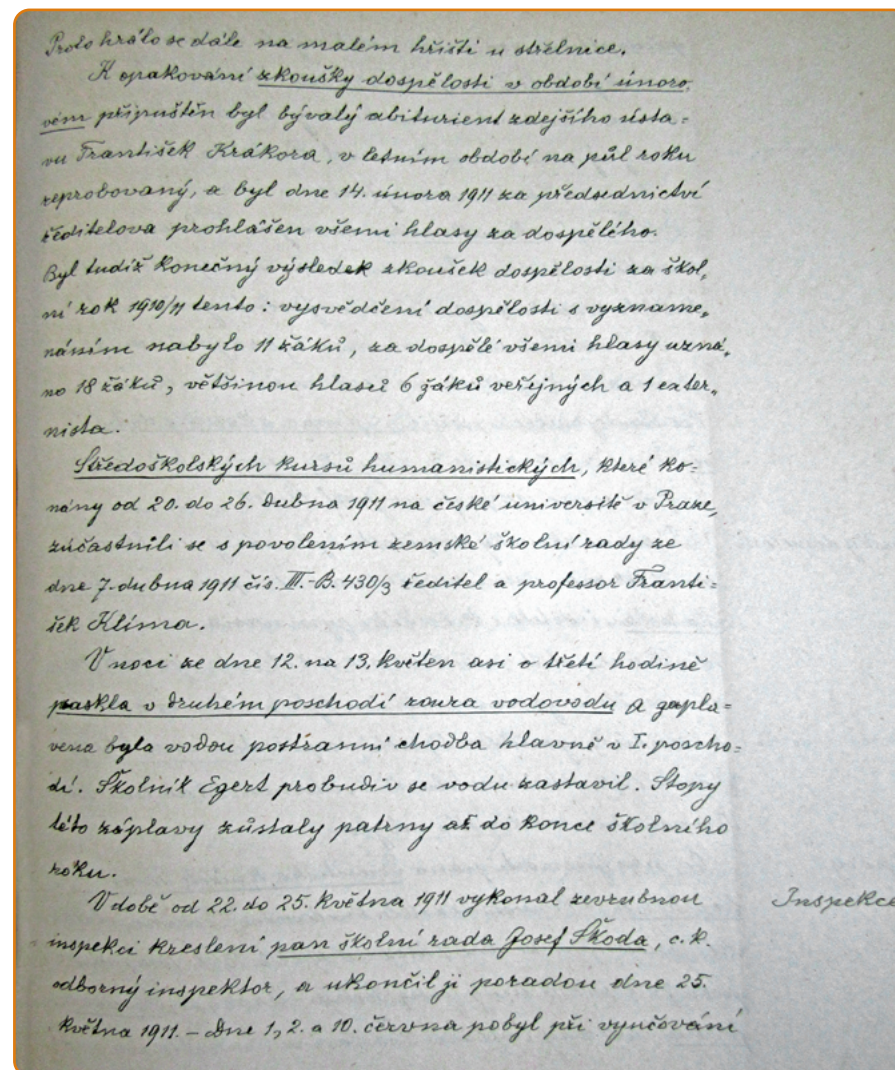 Proto hrálo se dále na malém hřišti u střelnice.
K opakování zkoušky dospělosti v období únoro„
vém připuštěn byl bývalý abiturient zdejšího ústa=
vu František Krákora, v letním období na půl roku
reprobovaný, a byl dne 14. února 1911 za předsednictví
ředitelova prohlášen všemi hlasy za dospělého.
Byl tudíž konečný výsledek zkoušek dospělosti za škol„
ní rok 1910/11 tento: vysvědčení dospělosti s vyzname„
náním nabylo 11 žáků, za dospělé všemi hlasy uzná„
no 18 žáků, většinou hlasů 6 žáků veřejných a 1 exter„
nista.
Středoškolských kursů humanistických, které ko=
nány od 20. do 26. dubna 1911 na české universitě v Praze,
zúčastnili se s povolením zemské školní rady ze
dne 7. dubna 1911 čís. III.-B. 430/3 ředitel a professor Franti=
šek Klíma.
V noci ze dne 12. na 13. květen asi o třetí hodině
praskla v druhém poschodí roura vodovodu a zapla=
vena byla vodou postranní chodba hlavně v I. poscho=
dí. Školník Egert probudiv se vodu zastavil. Stopy
této záplavy zůstaly patrny až do konce školního
roku.
V době od 22. do 25. května 1911 vykonal zevrubnou
Inspekce
inspekci kreslení pan školní rada Josef Škoda, c. k.
odborný inspektor, a ukončil ji poradou dne 25.
května 1911. – Dne 1., 2. a 10. června pobyl při vyučování